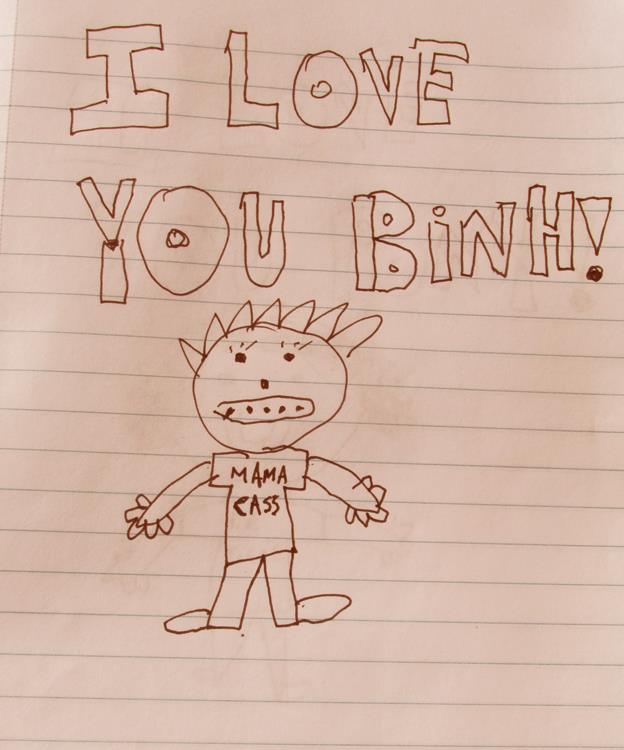 I LOVE
YOU BiNH!
MAMA
CASS